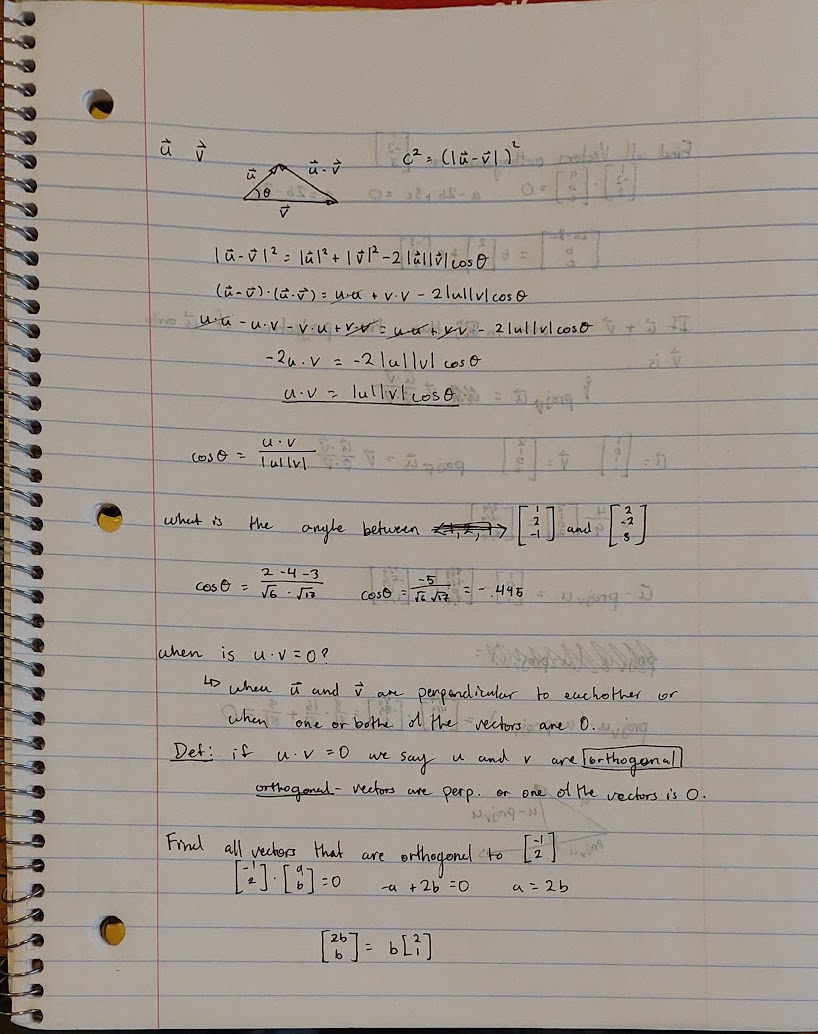 u⃗ v⃗ c² = (|u⃗ - v⃗|)²
u⃗ θ v⃗ u⃗ - v⃗
|u⃗ - v⃗|² = |u⃗|² + |v⃗|² - 2|u⃗||v⃗|cosθ
(u⃗ - v⃗)·(u⃗ - v⃗) = u·u + v·v - 2|u||v|cosθ
u·u - u·v - v·u + v·v = u·u + v·v - 2|u||v|cosθ
-2u·v = -2|u||v|cosθ
u·v = |u||v|cosθ
cosθ = u·v / |u||v|
what is the angle between [1 2 -1] and [2 -2 3]
cosθ = 2-4-3 / √6 · √17 cosθ = -5 / √6 √17 = -.495
when is u·v = 0?
↳ when u⃗ and v⃗ are perpendicular to eachother or
when one or bothe of the vectors are 0.
Def: if u·v = 0 we say u and v are orthogonal
orthogonal - vectors are perp. or one of the vectors is 0.
Find all vectors that are orthogonal to [-1 2]
[-1 2] · [a b] = 0 -a + 2b = 0 a = 2b
[2b b] = b[2 1]